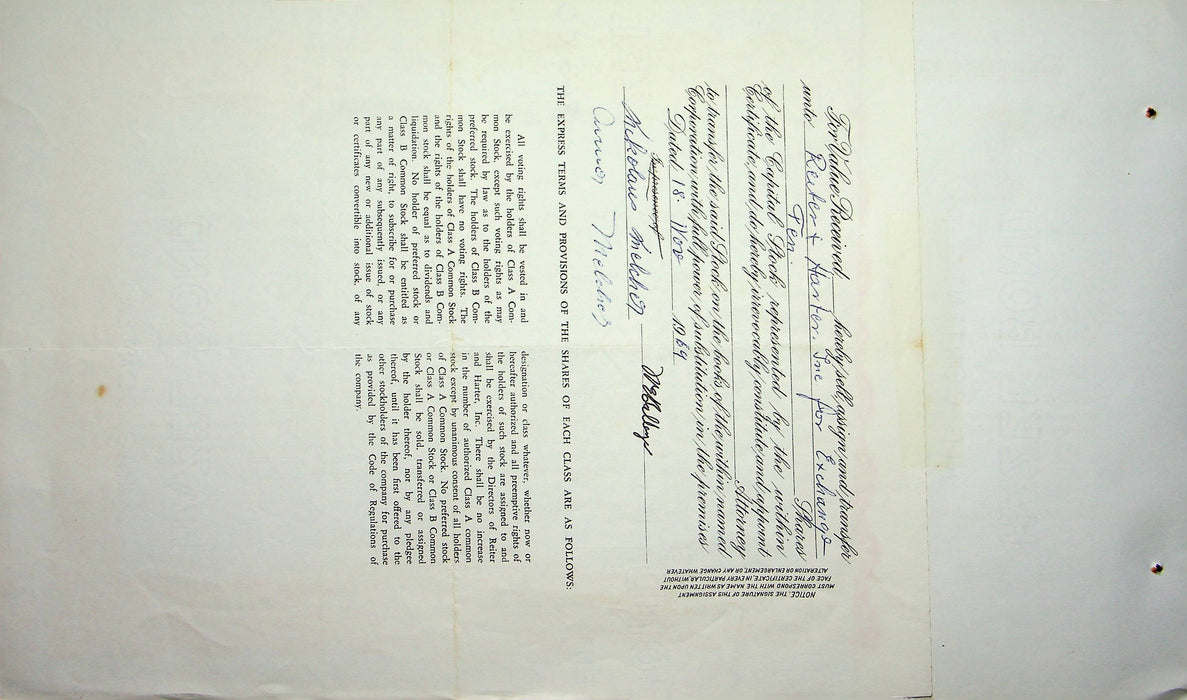 For Value Received hereby sell, assign and transfer
unto Reiter & Harter, Inc for Exchange
Ten Shares
of the Capital Stock represented by the within
Certificate, and do hereby irrevocably constitute and appoint
Attorney
to transfer the said Stock on the books of the within named
Corporation, with full power of substitution in the premises
Dated 18 Nov 1969
In presence of
Nikolaus Melcher
Melcher
NOTICE. THE SIGNATURE OF THIS ASSIGNMENT
MUST CORRESPOND WITH THE NAME AS WRITTEN UPON THE
FACE OF THE CERTIFICATE, IN EVERY PARTICULAR, WITHOUT
ALTERATION OR ENLARGEMENT, OR ANY CHANGE WHATEVER
THE EXPRESS TERMS AND PROVISIONS OF THE SHARES OF EACH CLASS ARE AS FOLLOWS:
All voting rights shall be vested in and
be exercised by the holders of Class A Com-
mon Stock, except such voting rights as may
be required by law as to the holders of the
preferred stock. The holders of Class B Com-
mon Stock shall have no voting rights. The
rights of the holders of Class A Common Stock
and the rights of the holders of Class B Com-
mon stock shall be equal as to dividends and
liquidation. No holder of preferred stock or
Class B Common Stock shall be entitled as
a matter of right, to subscribe for or purchase
any part of any subsequently issued, or any
part of any new or additional issue of stock
or certificates convertible into stock, of any
designation or class whatever, whether now or
hereafter authorized and all preemptive rights of
the holders of such stock are assigned to and
shall be exercised by the Directors of Reiter
and Harter, Inc. There shall be no increase
in the number of authorized Class A common
stock except by unanimous consent of all holders
of Class A Common Stock. No preferred stock
or Class A Common Stock or Class B Common
Stock shall be sold, transferred or assigned
by the holder thereof, nor by any pledgee
thereof, until it has been first offered to the
other stockholders of the company for purchase
as provided by the Code of Regulations of
the company.